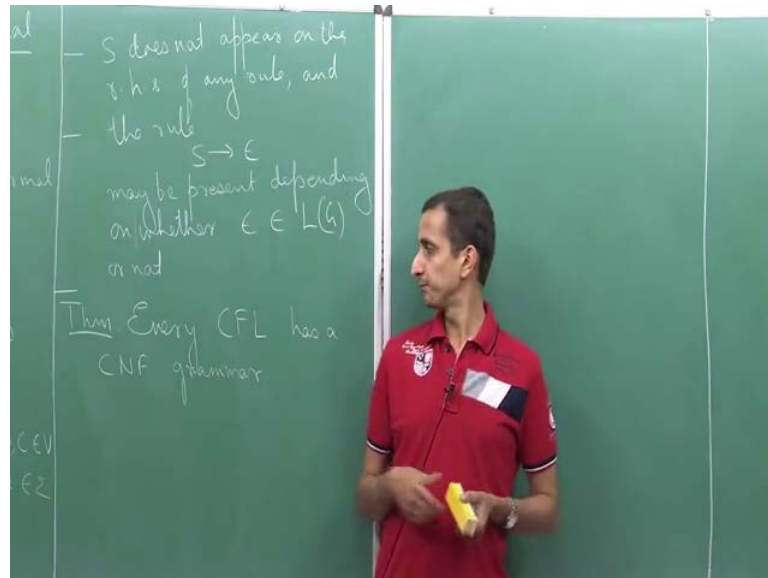 al
rmal
C ∈ V
∈ Σ
– S does not appear on the
r.h.s of any rule, and
– the rule
S → ε
may be present depending
on whether ε ∈ L(G)
or not
Thm. Every CFL has a
CNF grammar